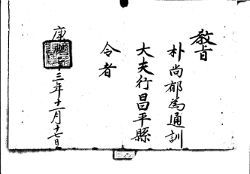 教旨
朴尚郁為通訓
大夫行昌平縣
令者
康熙
三年十一月十七日